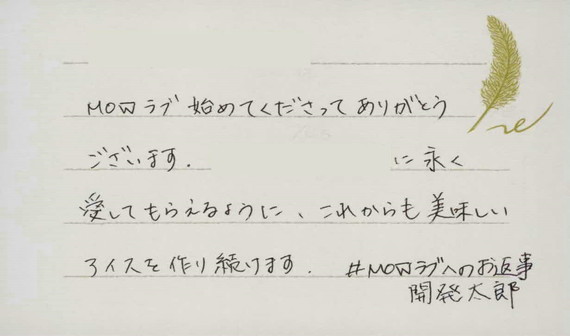 MOWラブ始めてくださってありがとう
ございます. に永く
愛してもらえるように、これからも美味しい
アイスを作り続けます. #MOWラブへのお返事
開発太郎